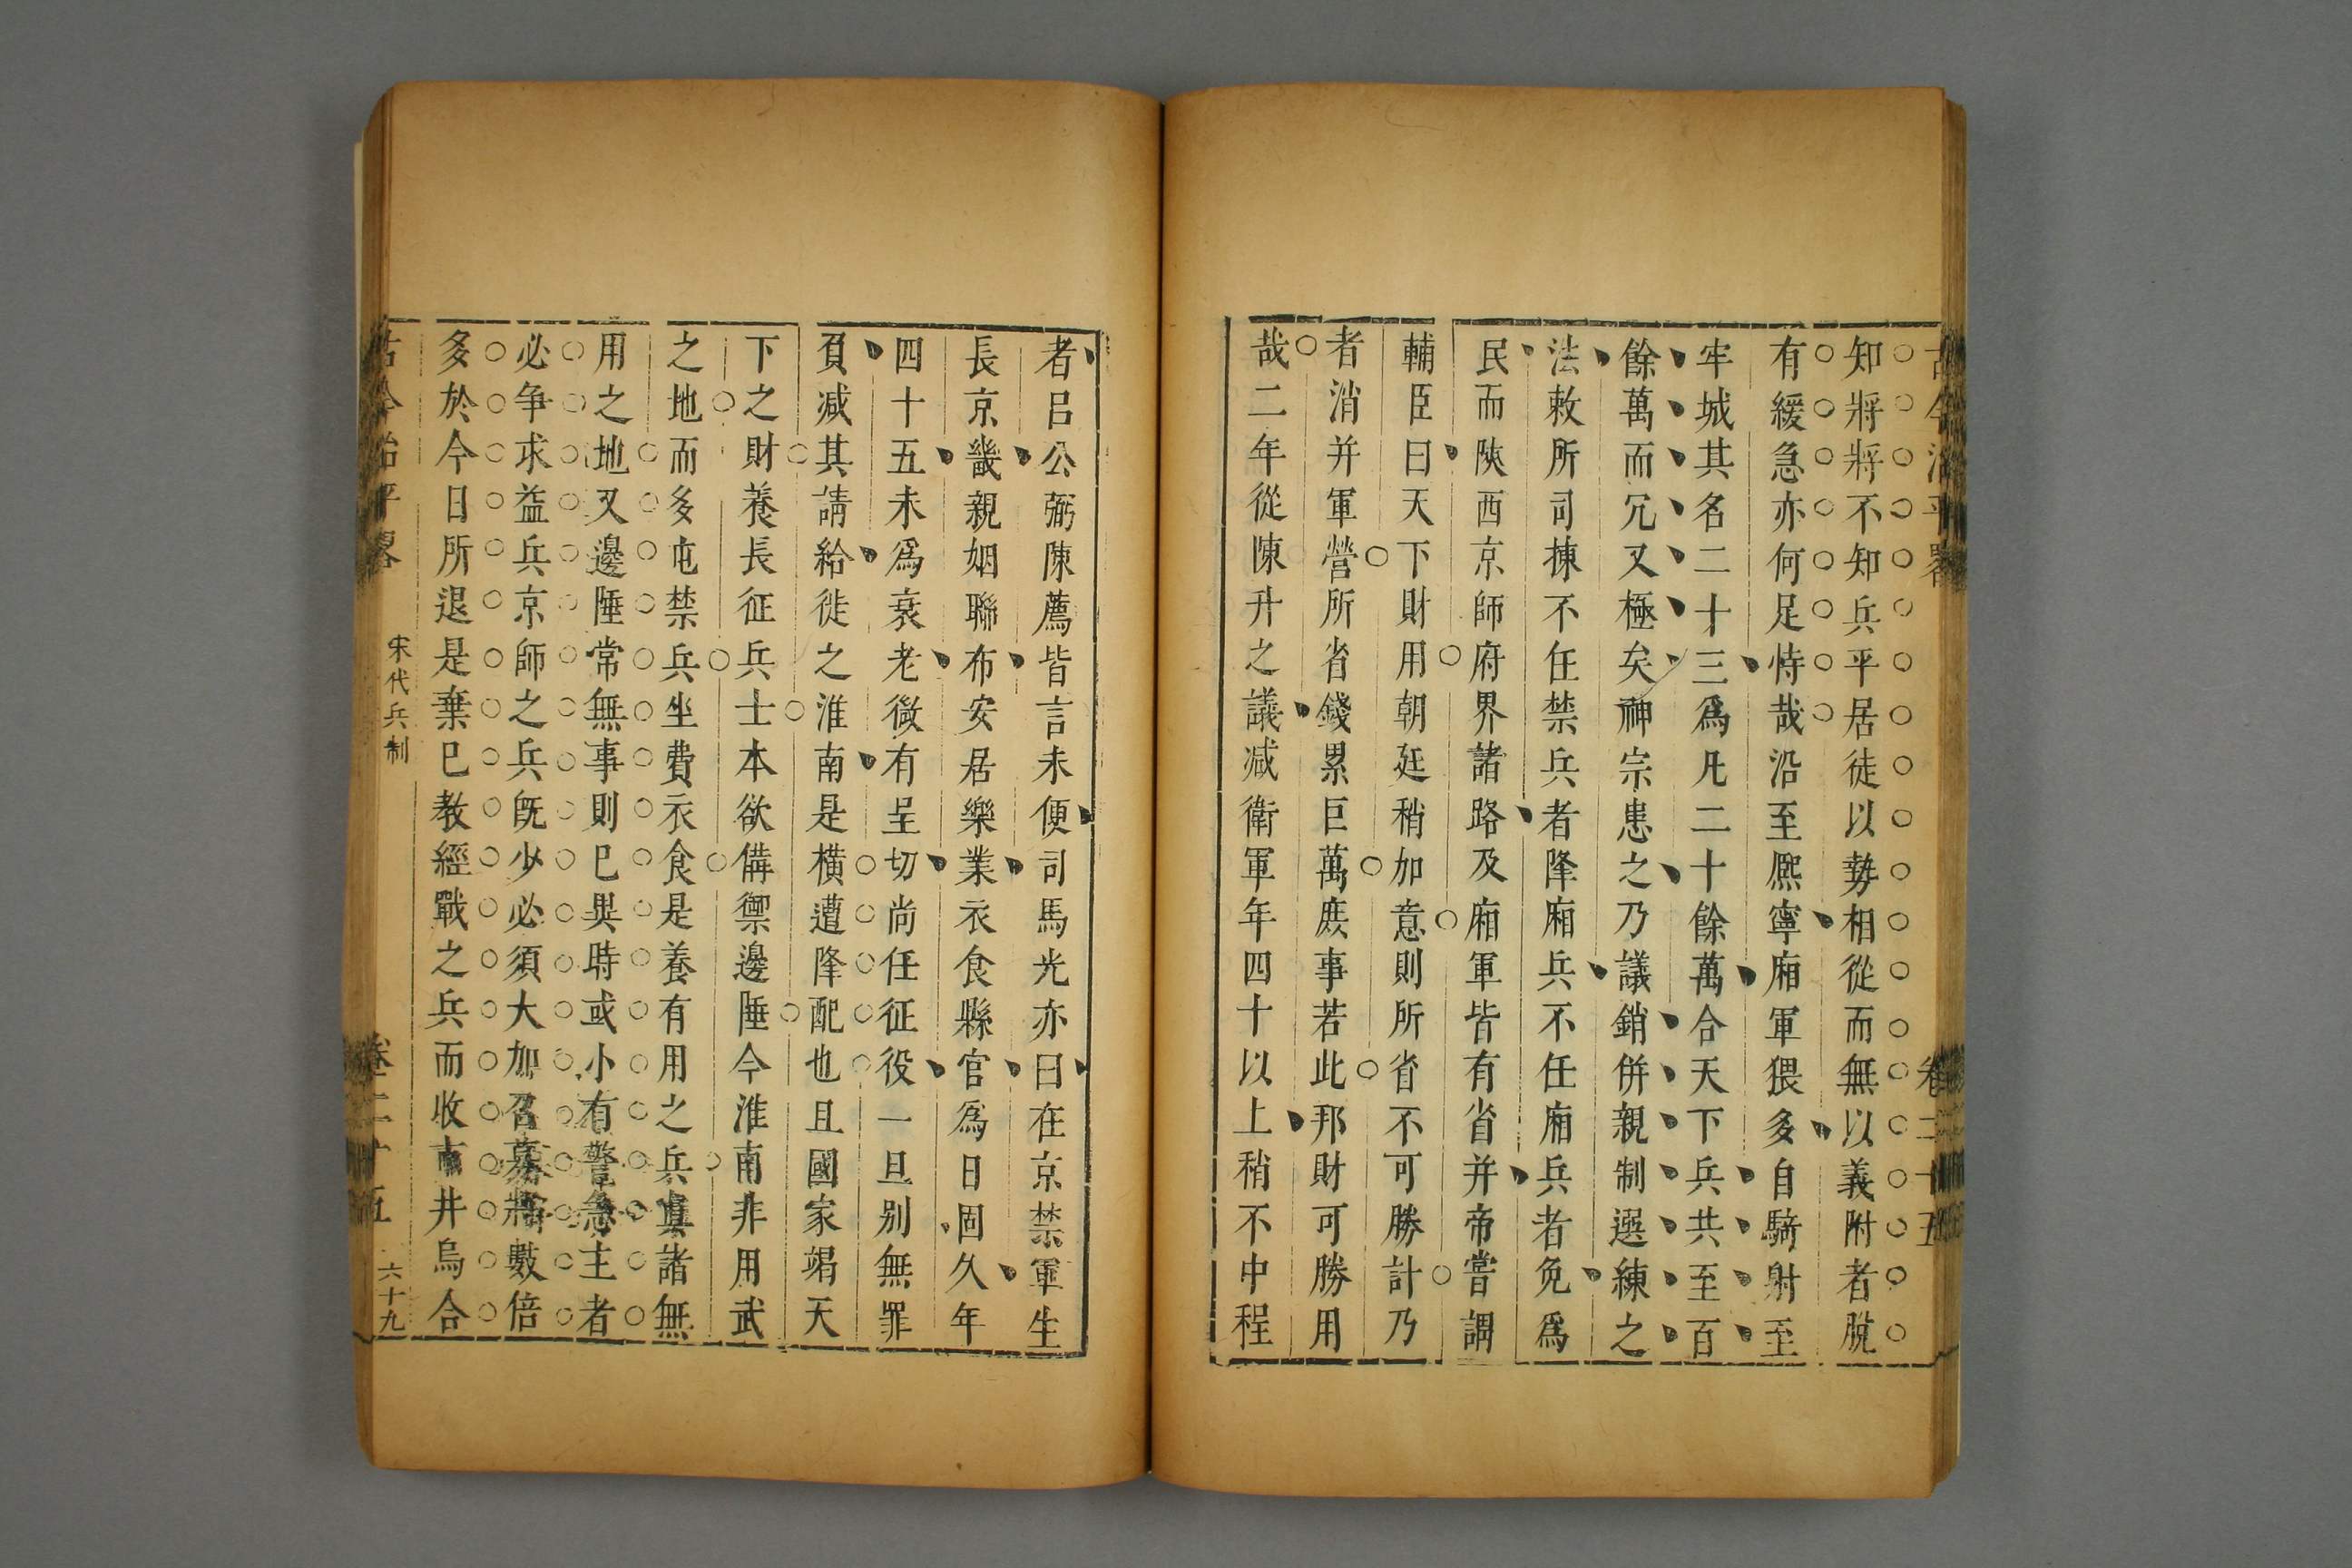 古今治平畧
卷二十五
知將將不知兵平居徒以勢相從而無以義附者脫
有緩急亦何足恃哉沿至熈寧廂軍猥多自騎射至
牢城其名二十三爲凡二十餘萬合天下兵共至百
餘萬而冗又極矣神宗患之乃議銷併親制選練之
法敕所司揀不任禁兵者降廂兵不任廂兵者免爲
民而陝西京師府界諸路及廂軍皆有省并帝嘗謂
輔臣曰天下財用朝廷稍加意則所省不可勝計乃
者消并軍營所省錢累巨萬庶事若此邦財可勝用
哉二年從陳升之議減衛軍年四十以上稍不中程
者呂公弼陳薦皆言未便司馬光亦曰在京禁軍生
長京畿親姻聯布安居樂業衣食縣官爲日固久年
四十五未爲衰老微有呈切尚任征役一旦别無罪
負减其請給徙之淮南是橫遭降配也且國家竭天
下之財養長征兵士本欲備禦邊陲今淮南非用武
之地而多屯禁兵坐費衣食是養有用之兵寘諸無
用之地又邊陲常無事則已異時或小有警急主者
必爭求益兵京師之兵既少必須大加召募將數倍
多於今日所退是棄已教經戰之兵而收市井烏合
古今治平畧
宋代兵制
卷二十五
六十九